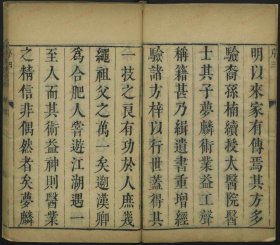 明以有多行世傳焉其方多
驗裔孫楠續授太醫院醫
士其子夢麟術業益工聲
稱籍甚乃緝遺書重增經
驗諸方梓以行世蓋得其
一技之良有功於人庶幾
繩祖父之萬一矣迺漢卿
為合肥人嘗遊江湖遇一
至人而其術益神則醫
之精信非偶然者矣夢麟